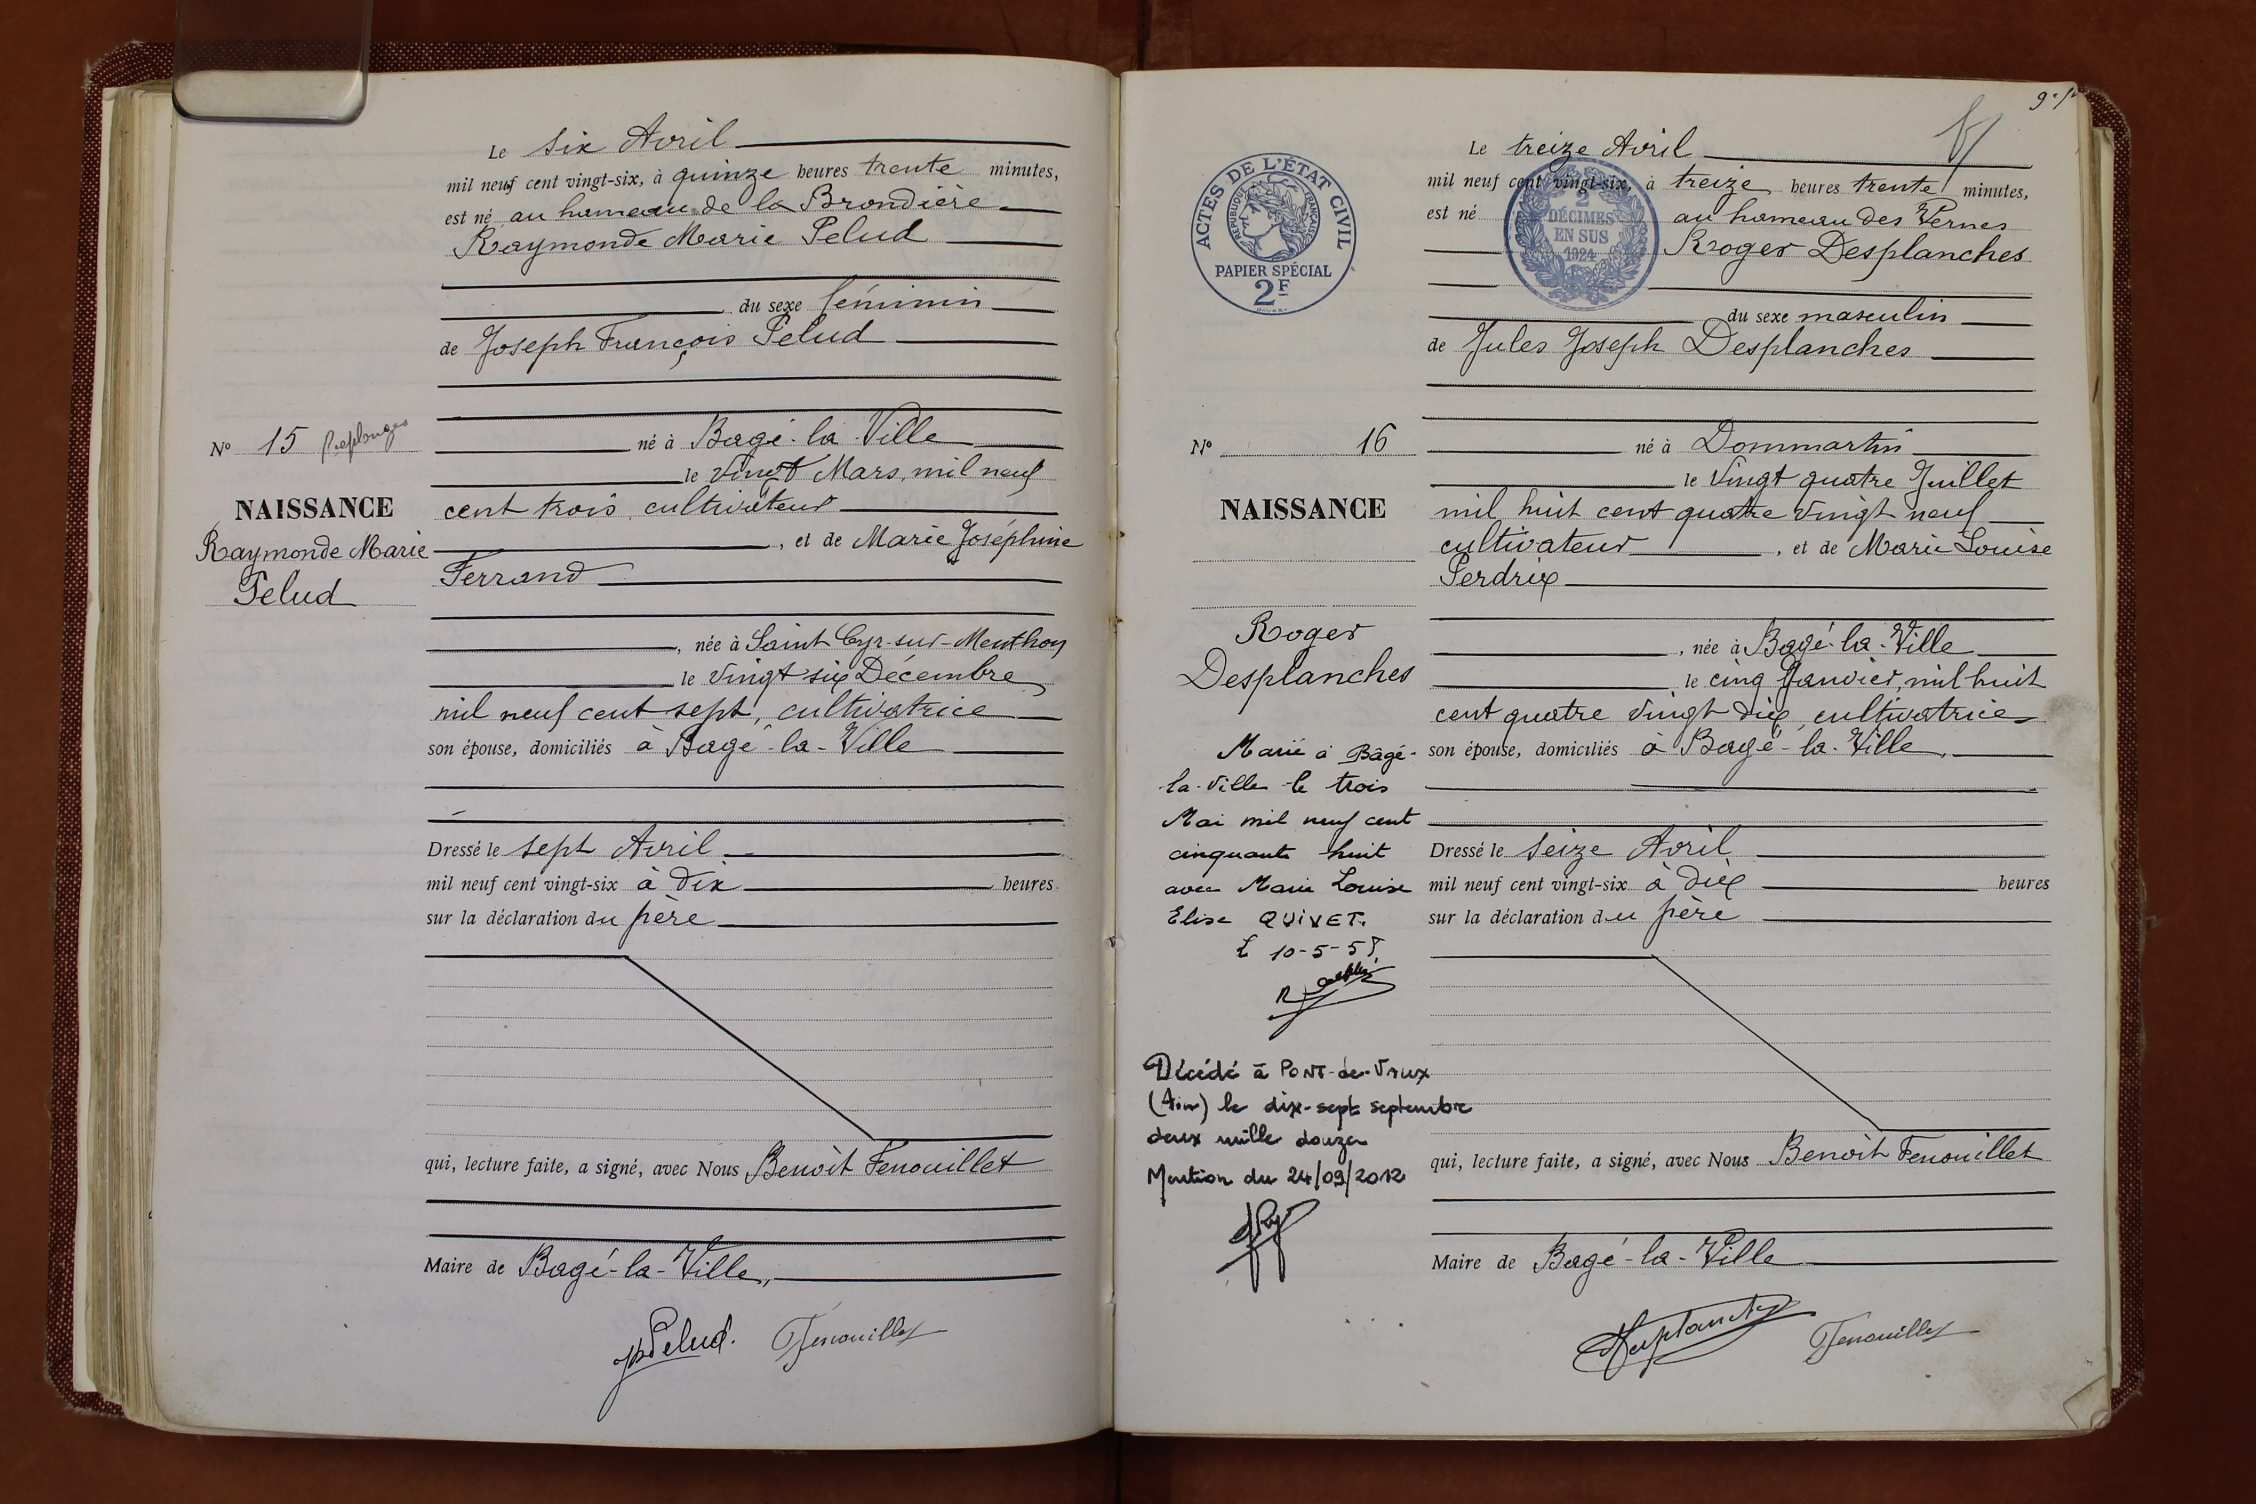 Le six Avril
mil neuf cent vingt-six, à quinze heures trente minutes,
est né au hameau de la Brondière
Raymonde Marie Pelud
du sexe féminin
de Joseph François Pelud
né à Bagé-la-Ville
le vingt Mars, mil neuf
cent trois, cultivateur
, et de Marie Joséphine
Ferrand
, née à Saint Cyr-sur-Menthon
le vingt six Décembre
mil neuf cent sept, cultivatrice
son épouse, domiciliés à Bagé-la-Ville
Dressé le sept Avril
mil neuf cent vingt-six à dix heures
sur la déclaration du père
qui, lecture faite, a signé, avec Nous Benoit Fenouillet
Maire de Bagé-la-Ville,
Pelud. Fenouillet
No 15 Replonges
NAISSANCE
Raymonde Marie
Pelud
Le treize Avril
mil neuf cent vingt-six, à treize heures trente minutes,
est né au hameau des Vernes
Roger Desplanches
du sexe masculin
de Jules Joseph Desplanches
né à Dommartin
le vingt quatre Juillet
mil huit cent quatre vingt neuf
cultivateur, et de Marie Louise
Perdrix
, née à Bagé-la-Ville
le cinq Janvier, mil huit
cent quatre vingt dix, cultivatrice
son épouse, domiciliés à Bagé-la-Ville,
Dressé le seize Avril
mil neuf cent vingt-six à dix heures
sur la déclaration du père
qui, lecture faite, a signé, avec Nous Benoit Fenouillet
Maire de Bagé-la-Ville
Desplanches Fenouillet
ACTES DE L'ÉTAT CIVIL
RÉPUBLIQUE FRANÇAISE
PAPIER SPÉCIAL
2F
2
DÉCIMES
EN SUS
1924
No 16
NAISSANCE
Roger
Desplanches
Marié à Bâgé-
la-Ville le trois
Mai mil neuf cent
cinquante huit
avec Marie Louise
Elise QUIVET.
L 10-5-58
Décédé à PONT-de-Vaux
(Ain) le dix-sept septembre
deux mille douze
Mention du 24/09/2012